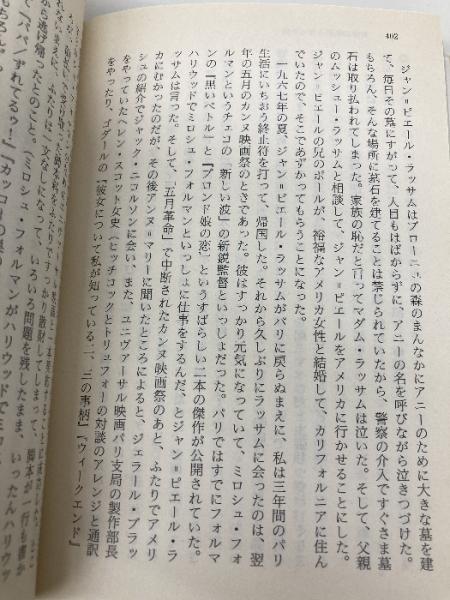 402
ジャン＝ピエール・ラッサムはブローニュの森のまんなかにアニーのために大きな墓を建
て、毎日その墓にすがって、人目もはばからずに、アニーの名を呼びながら泣きつづけた。
もちろん、そんな場所に墓石を建てることは禁じられていたから、警察の介入ですぐさま墓
石は取り払われてしまった。家族の恥だと言ってマダム・ラッサムは泣いた。そして、父親
のムッシュー・ラッサムと相談して、ジャン＝ピエールをアメリカに行かせることにした。
ジャン＝ピエールの兄のポールが、裕福なアメリカ女性と結婚して、カリフォルニアに住ん
でいたので、そこであずかってもらうことになった。
一九六七年の夏、ジャン＝ピエール・ラッサムがパリに戻らぬまえに、私は三年間のパリ
生活にいちおう終止符を打って、帰国した。それから久しぶりにラッサムに会ったのは、翌
年の五月のカンヌ映画祭のときであった。彼はすっかり元気になっていて、ミロシュ・フォ
ルマンというチェコの「新しい波」の新鋭監督といっしょだった。パリではすでにフォルマ
ンの『黒いペトル』と『ブロンド娘の恋』というすばらしい二本の傑作が公開されていた。
ハリウッドでミロシュ・フォルマンといっしょに仕事をするんだ、とジャン＝ピエール・ラ
ッサムは言った。そして、「五月革命」で中断されたカンヌ映画祭のあと、ふたりでアメリ
カにむかったのだが、その後アンヌ＝マリーに聞いたところによると、ジェラール・ブラッ
シュの紹介でジャック・ニコルソンに会い、また、ユニヴァーサル映画パリ支局の製作部長
をやっていたヘレン・スコット女史（ヒッチコックとトリュフォーの対談のアレンジと通訳
をやったり、ゴダールの『彼女について私が知っている二、三の事柄』『ウイークエンド』